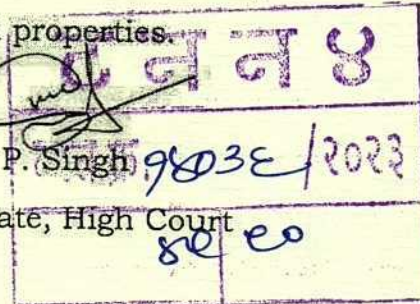 properties.
ट न न ४
P. Singh १४०३६/२०२३
ate, High Court